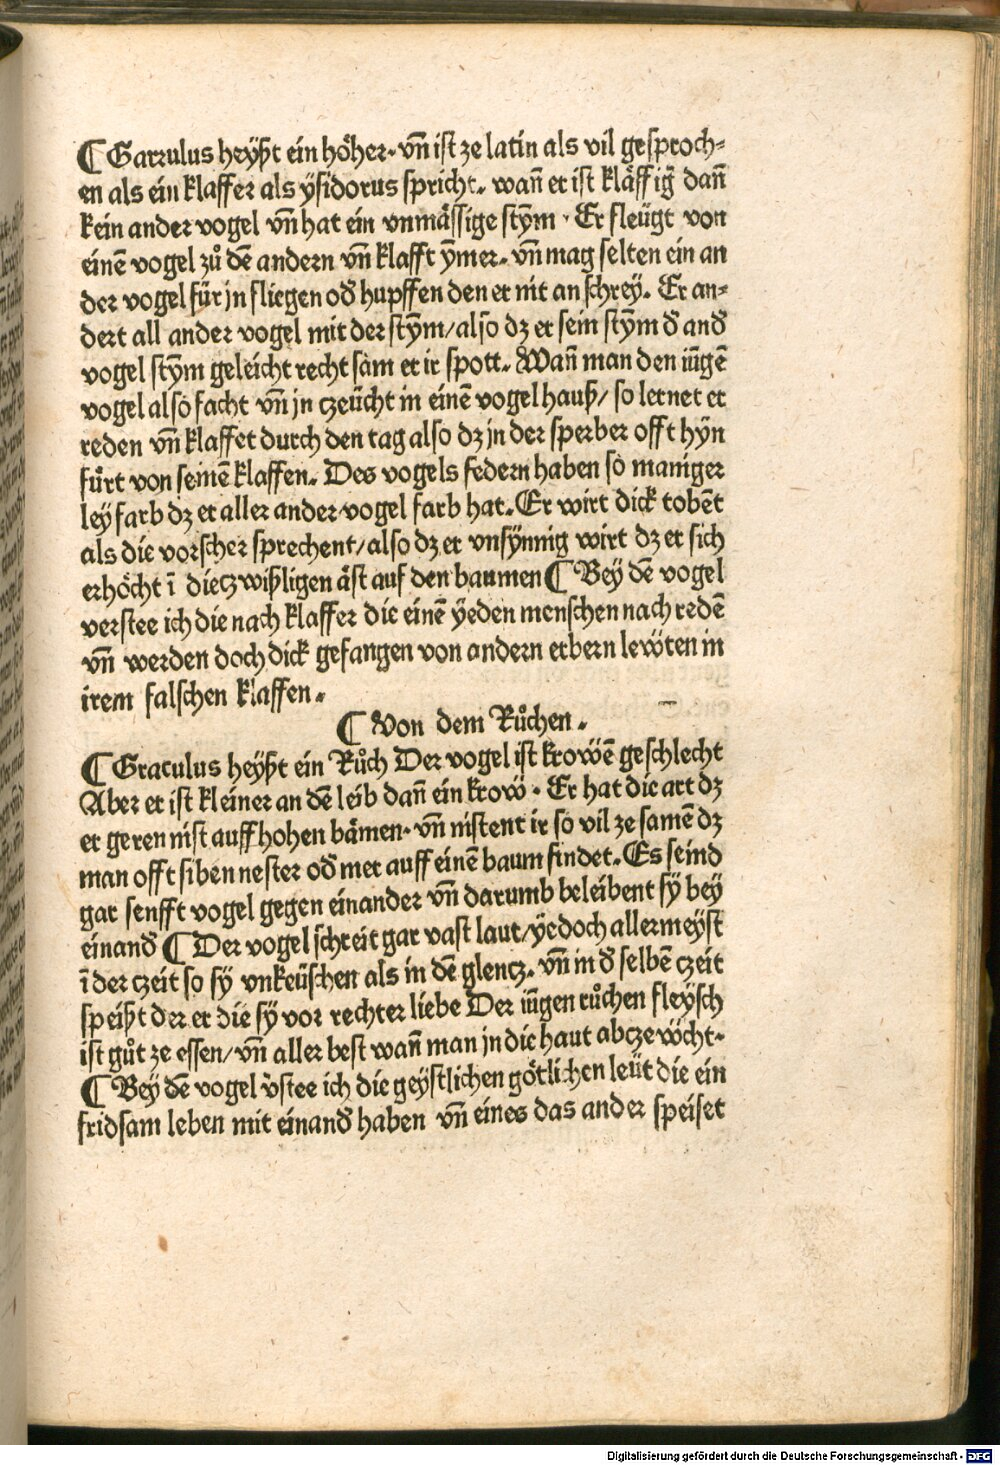 ¶ Garrulus heyßt ein höher. vn̄ ist ze latin als vil gesproch-
en als ein klaffer als ysidorus spricht. wan̄ er ist kläffiḡ dan̄
kein ander vogel vn̄ hat ein vnmässige stȳm . Er fleügt von
einē vogel zů dē andern vn̄ klafft ȳmer. vn̄ mag selten ein an
der vogel für jn fliegen oď hupffen den er nit an schrey. Er an-
dert all ander vogel mit der stȳm/ also dz er sein stȳm ď anď
vogel stȳm geleicht recht sam er ir spott. Wan̄ man den iūgē
vogel also facht vn̄ jn czeücht in einē vogelhauß/ so lernet er
reden vn̄ klaffet durch den tag also dz jn der sperber offt hyn
fürt von seinē klaffen. Des vogels federn haben so maniger
ley farb dz er aller ander vogel farb hat. Er wirt dick tobēt
als die vorscher sprechent/ also dz er vnsynnig wirt dz er sich
erhöcht ī die czwißligen äst auf den baumen ¶ Bey dē vogel
verstee ich die nach klaffer die einē yeden menschen nach redē
vn̄ werden doch dick gefangen von andern erbern lewten in
irem falschen klaffen.
¶ Von dem Růchen.
¶ Graculus heyßt ein Růch Der vogel ist krowē geschlecht
Aber er ist kleiner an dē leib dan̄ ein krow . Er hat die art dz
er geren nist auff hohen bämen. vn̄ nistent ir so vil ze samē dz
man offt siben nester oď mer auff einē baum findet. Es seind
gar senfft vogel gegen einander vn̄ darumb beleibent sy bey
einanď ¶ Der vogel schreit gar vast laut/ yedoch allermeyst
ī der czeit so sy vnkeüschen als in dē glencz. vn̄ in ď selbē czeit
speißt der er die sy vor rechter liebe Der iūgen růchen fleysch
ist gůt ze essen/ vn̄ aller best wan̄ man jn die haut abczewcht.
¶ Bey dē vogel v̓stee ich die geystlichen götlichen leüt die ein
fridsam leben mit einanď haben vn̄ eines das ander speiset
Digitalisierung gefördert durch die Deutsche Forschungsgemeinschaft - DFG